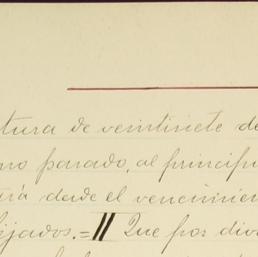 tura de veintisiete de
no pasado, al principi
ará desde el vencimien
fijados.= || Que por dive